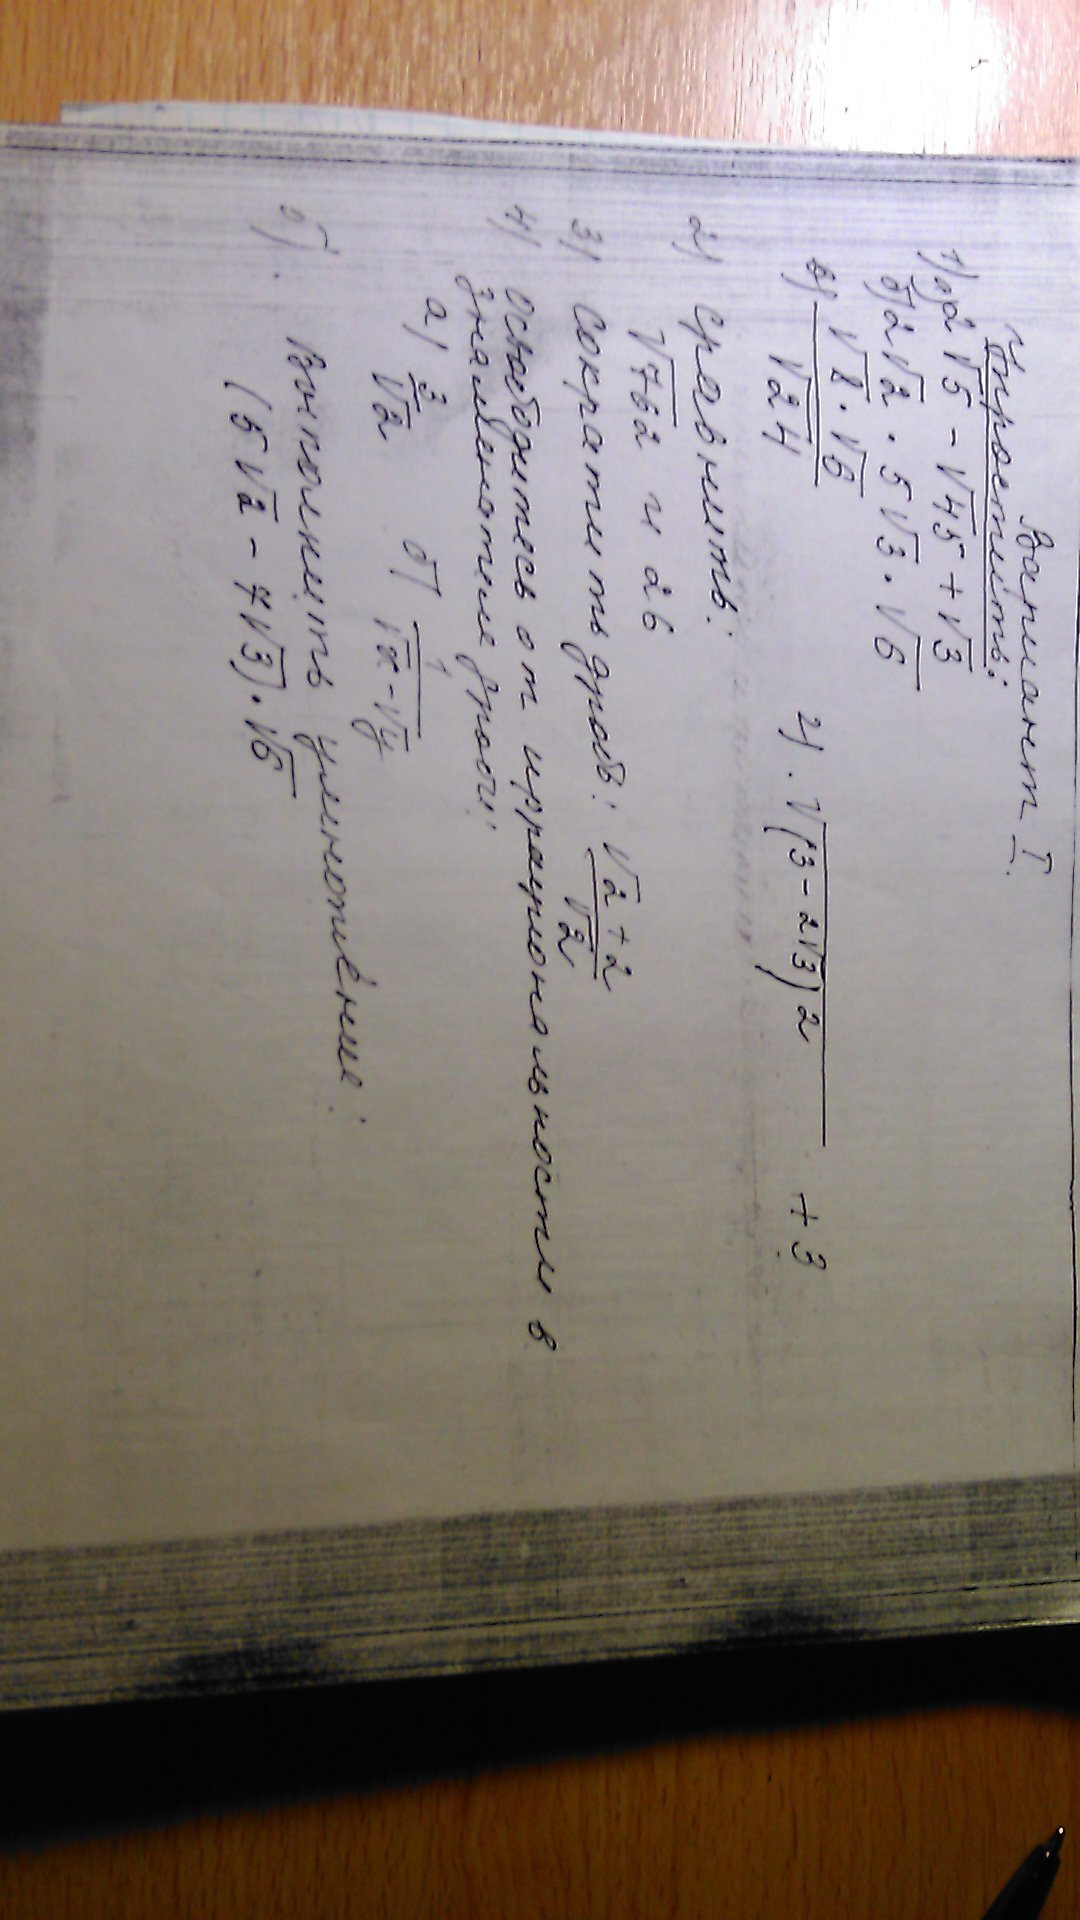 Вариант I.
Упростить:
1) а) 2√5 - √45 + √3
б) 2√2 · 5√3 · √6
в) √8 · √6 / √24 г). √(3 - 2√3)2 + 3
2) Сравнить:
√762 и 26
3) Сократить дробь: √2 + 2 / √2
4) Освободитесь от иррациональности в
знаменателе дроби:
а) 3/√2 б) 1/√x - √y
5). Выполнить умножение:
(5√2 - 7√3) · √6